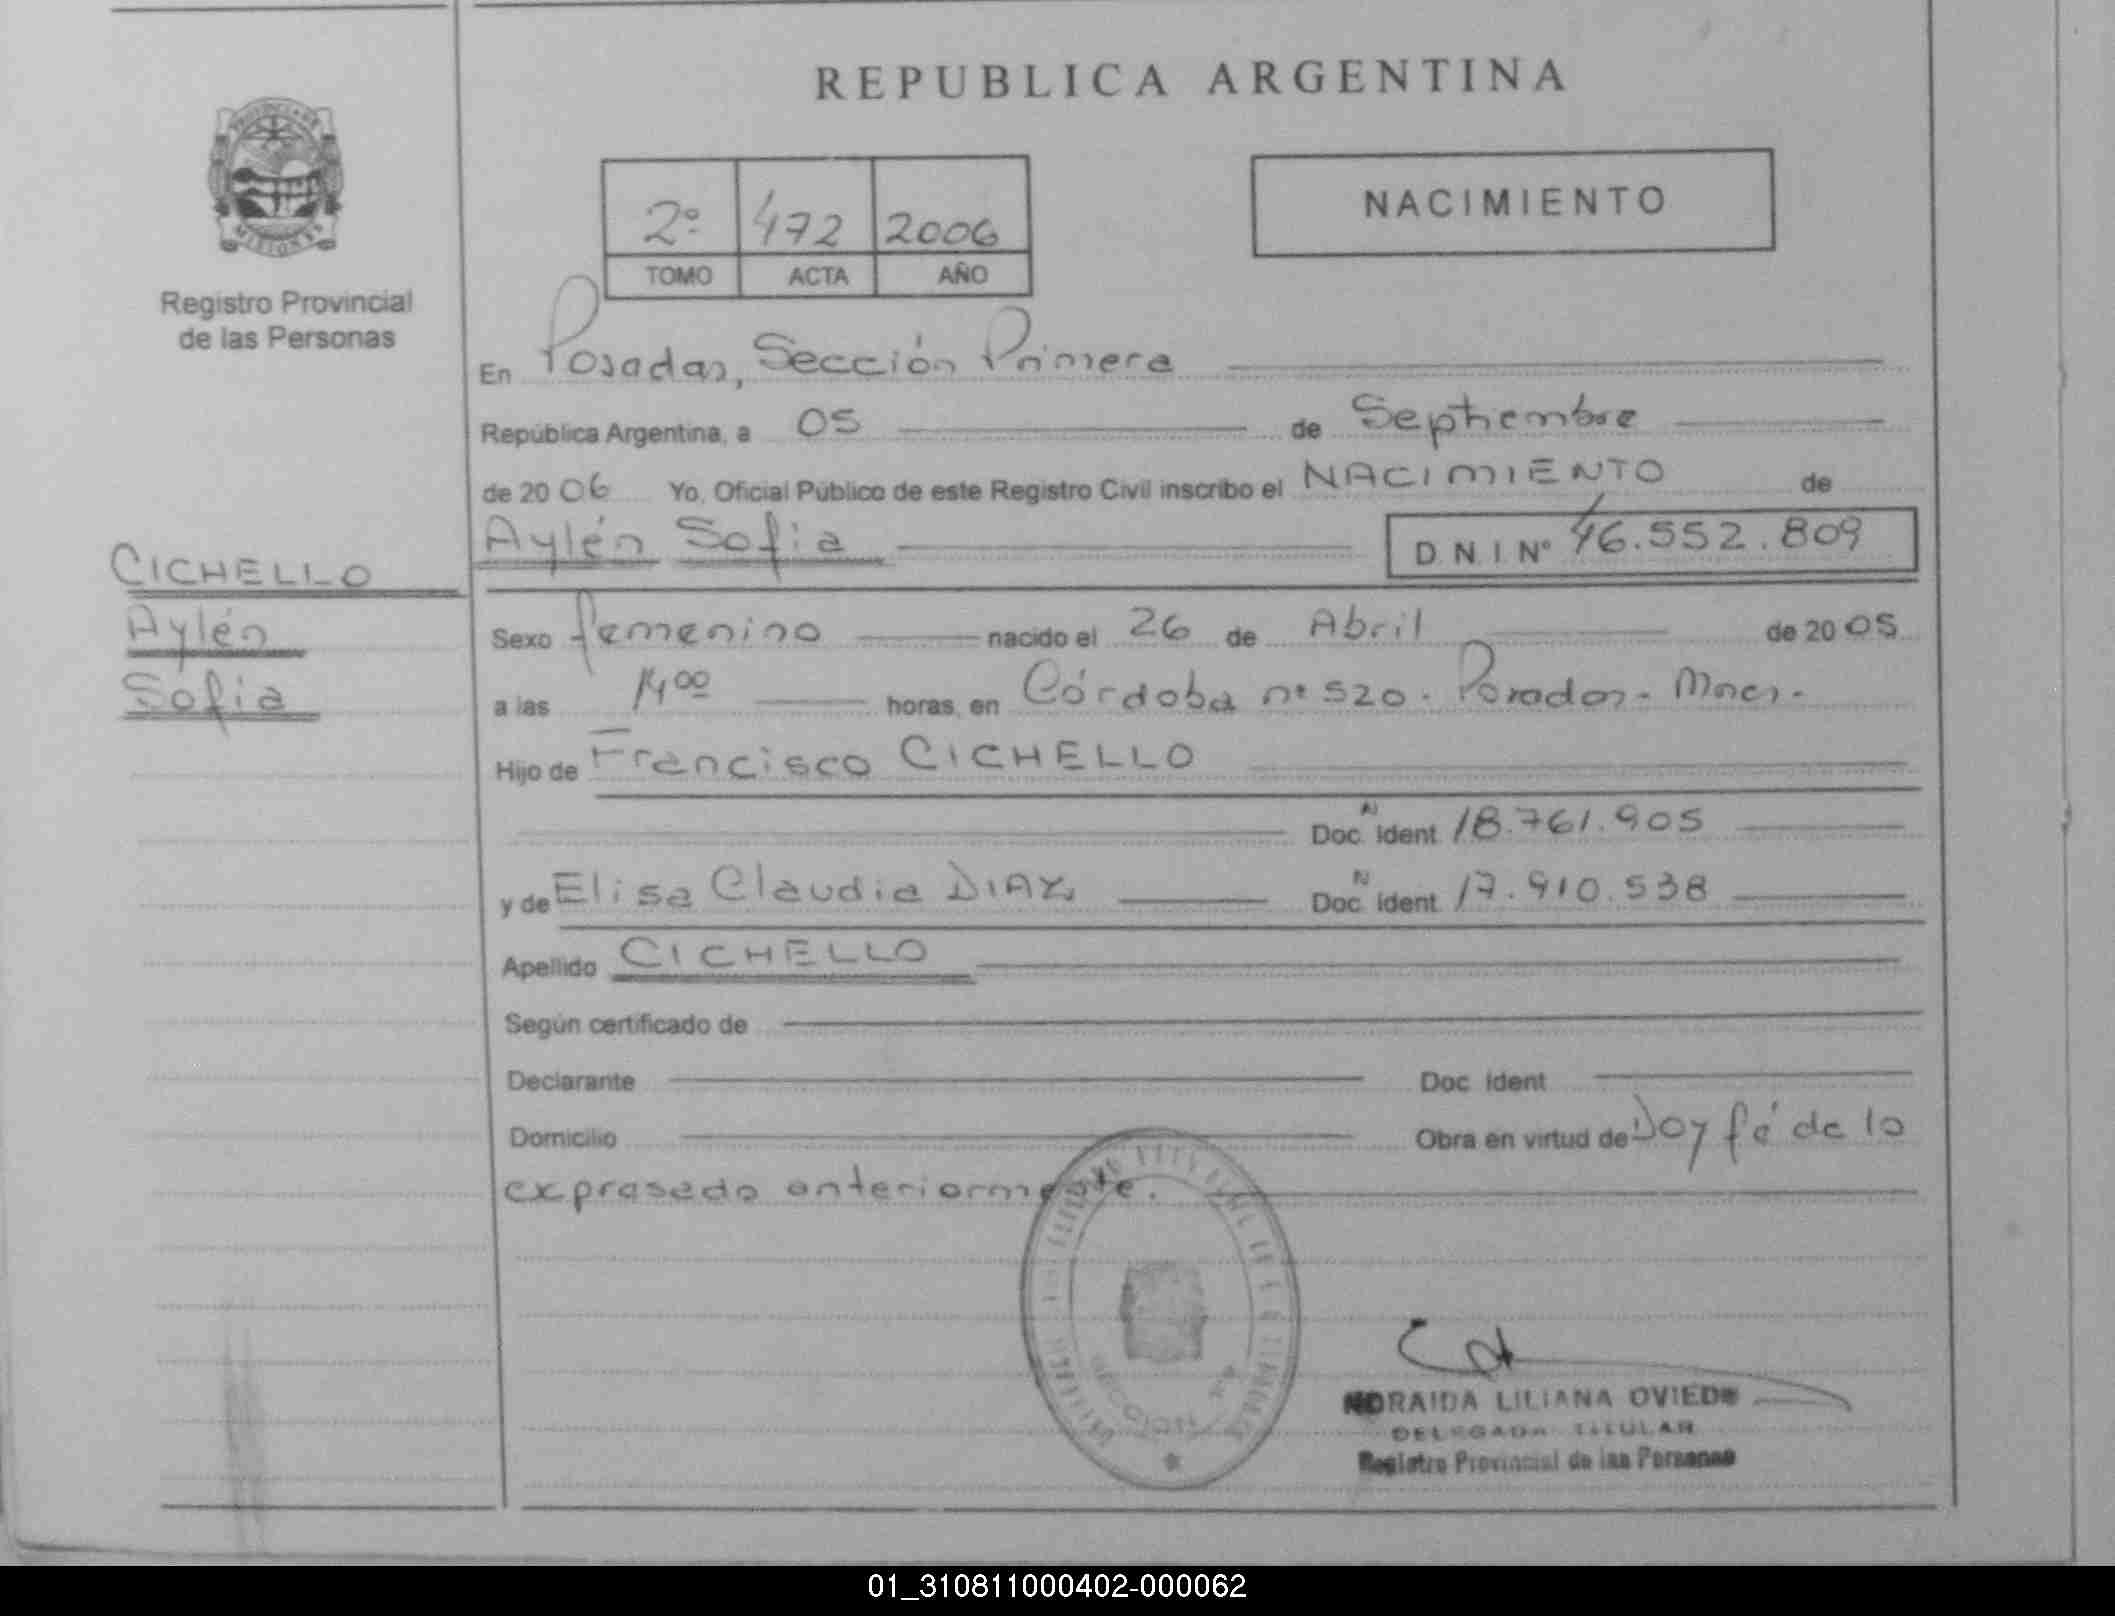 REPUBLICA ARGENTINA
PROVINCIA DE
MISIONES
Registro Provincial
de las Personas
2º 472 2006
TOMO ACTA AÑO
NACIMIENTO
En Posadas, Sección Primera
República Argentina, a 05 de Septiembre
de 2006 Yo, Oficial Público de este Registro Civil inscribo el NACIMIENTO de
Aylén Sofia D.N.I. Nº 46.552.809
CICHELLO
Aylén
Sofia
Sexo femenino nacido el 26 de Abril de 2005
a las 14ºº horas, en Córdoba nº 520. Posadas - Mnes.
Hijo de Francisco CICHELLO
N
Doc. Ident. 18.761.905
N
y de Elisa Claudia DIAZ Doc. Ident. 17.910.538
Apellido CICHELLO
Según certificado de
Declarante Doc. Ident
Domicilio Obra en virtud de Doy fé de lo
expresado anteriormente.
NORAIDA LILIANA OVIEDO
DELEGADA TITULAR
Registro Provincial de las Personas
01_310811000402-000062